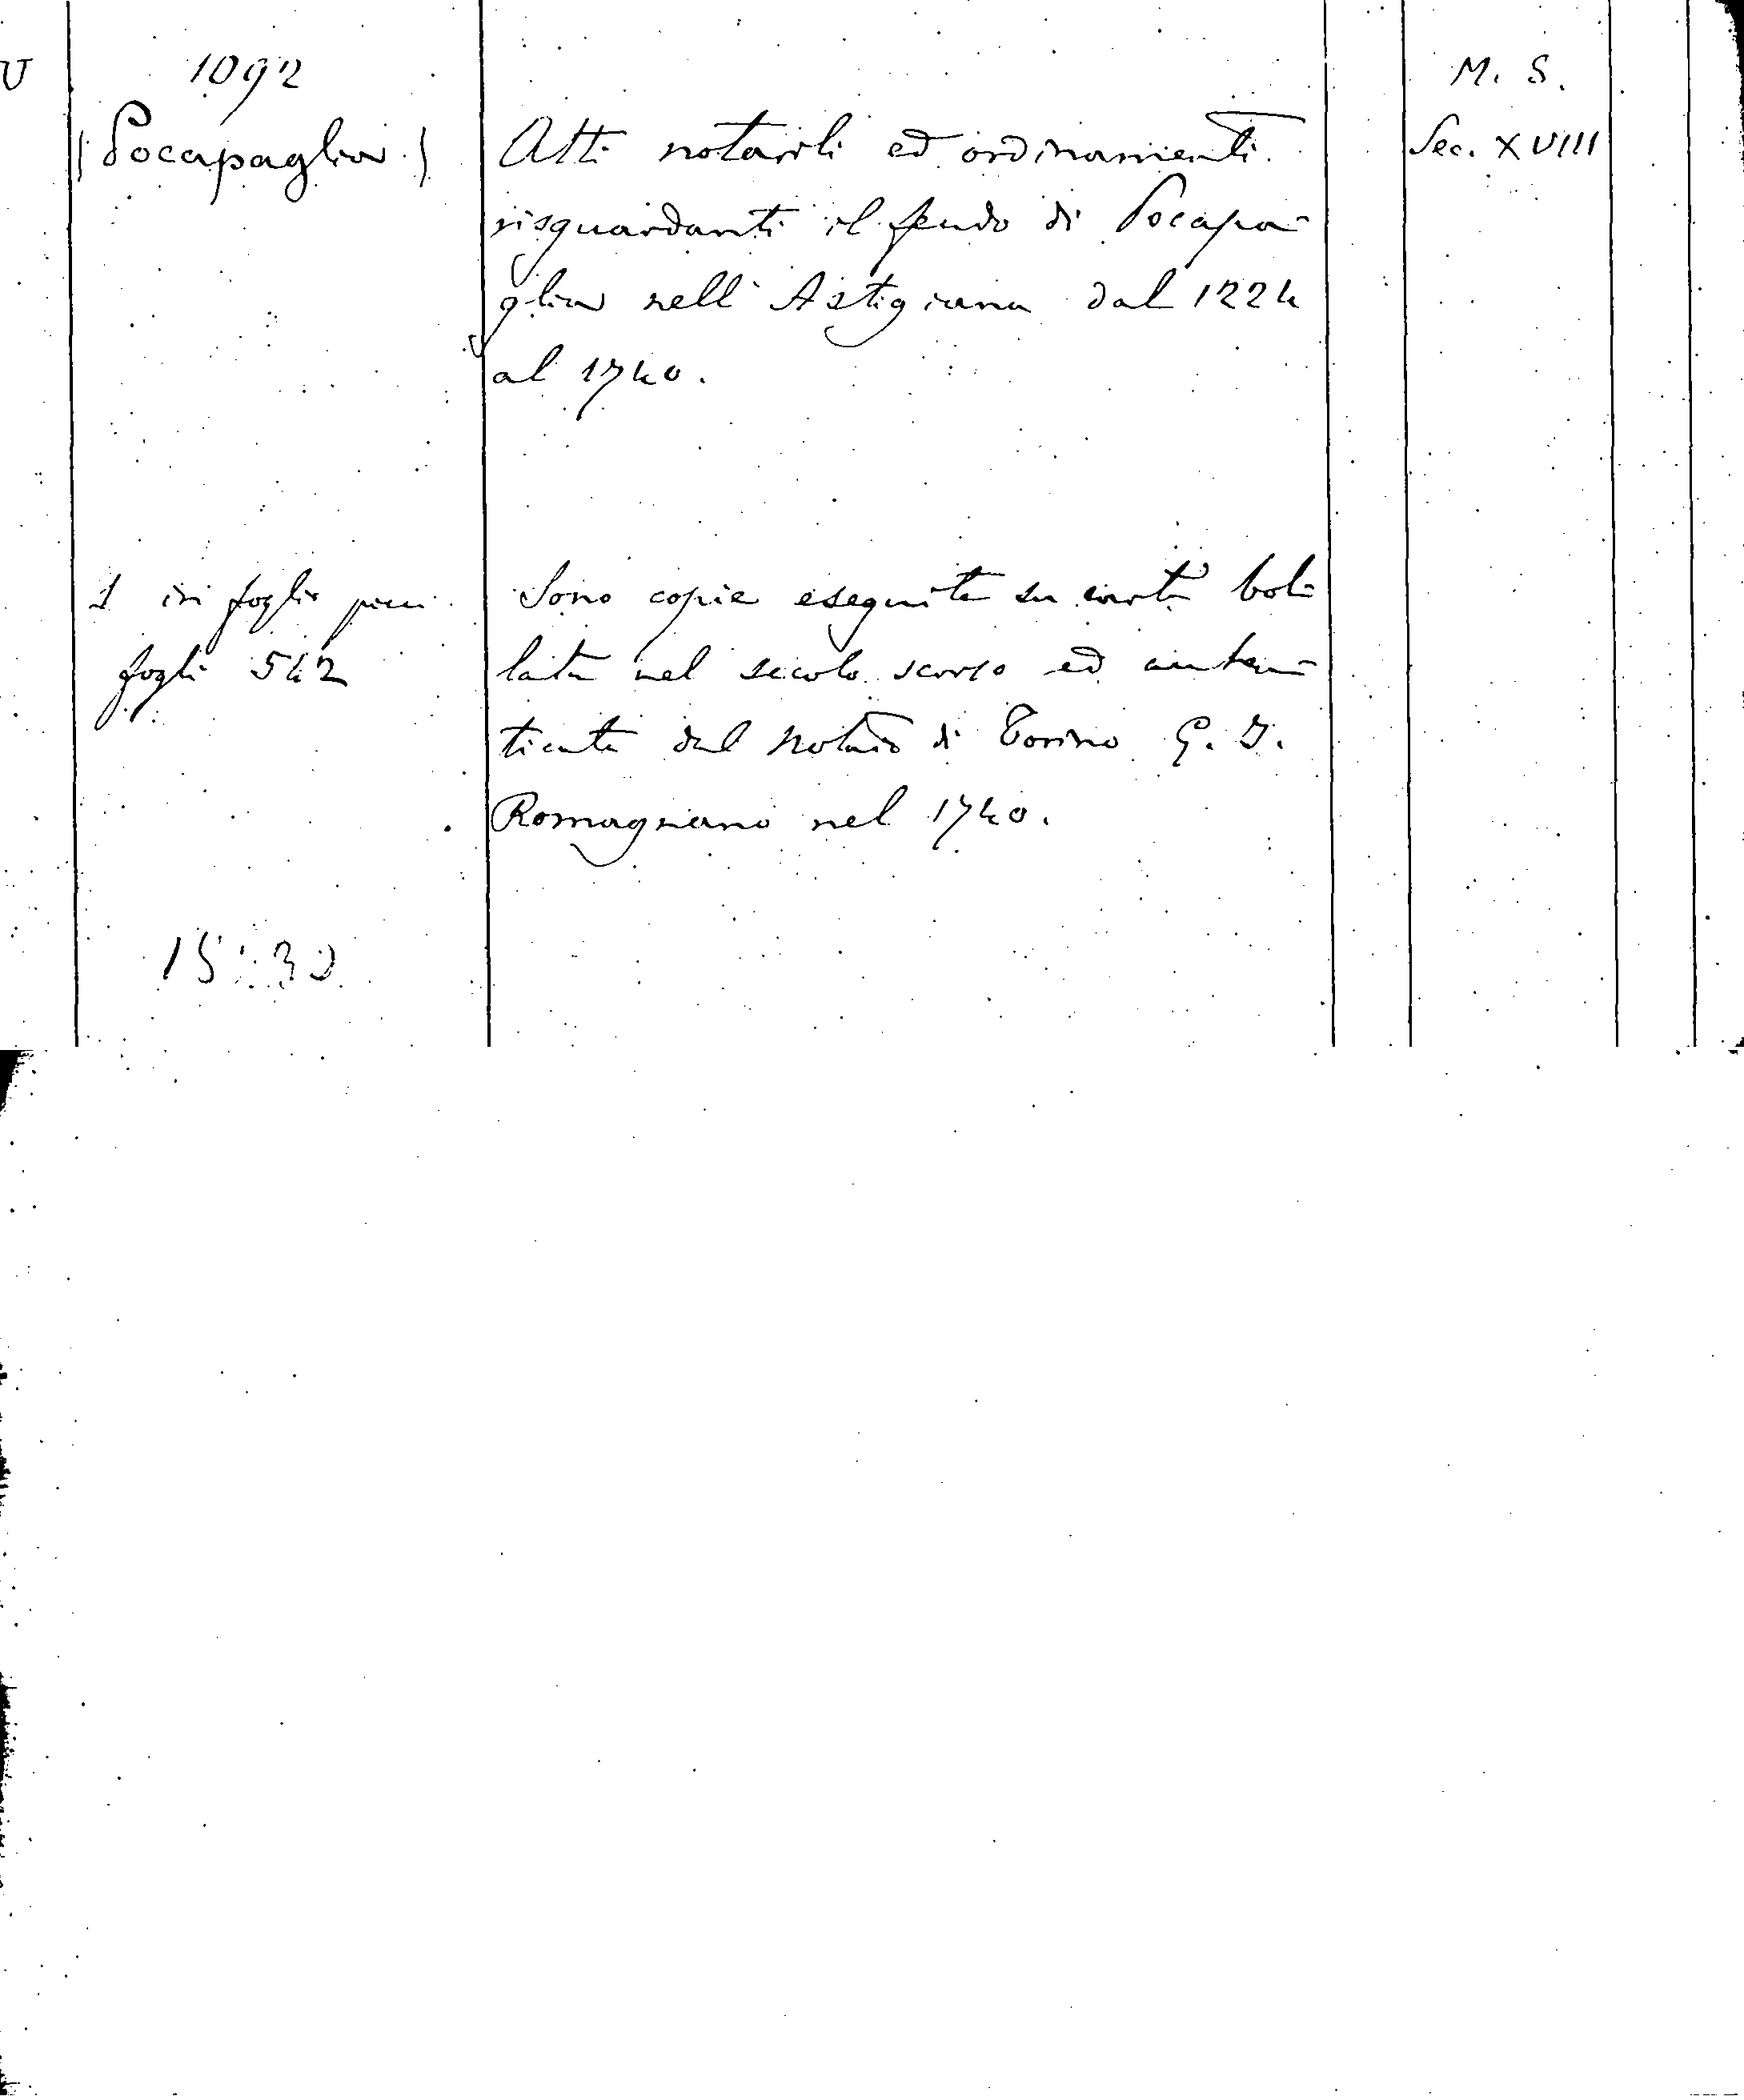 U
1092
(Pocapaglia)
Atti notarili ed ordinamenti
risguardanti il feudo di Pocapa-
glia nell'Astigiana dal 1224
al 1740.
M. S.
Sec. XVIII
1 in foglio picc.
fogli 542
Sono copie eseguite su carta bol-
lata nel secolo scorso ed auten-
ticate dal Notaio di Torino G. I.
Romagnano nel 1740.